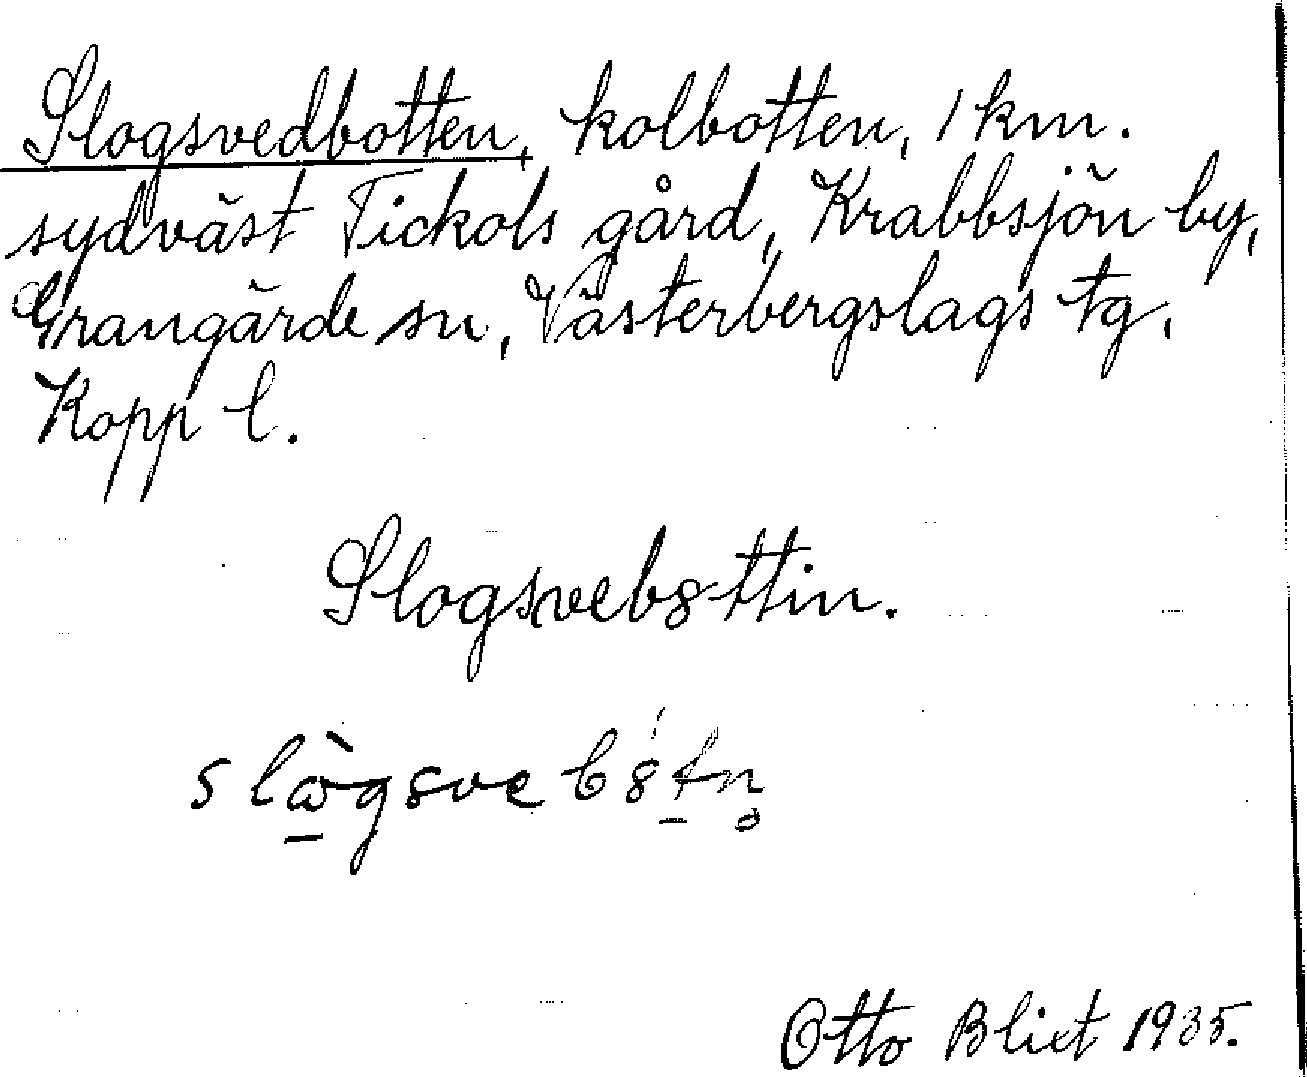 Slogsvedbotten, kolbotten, 1 km.
sydväst Tickols gård, Krabbsjön by,
Grangärde sn, Västerbergslags tg,
Kopp l.
Slogsveb8ttin.
slὼgsveb8́tn̥
Otto Blixt 1935.